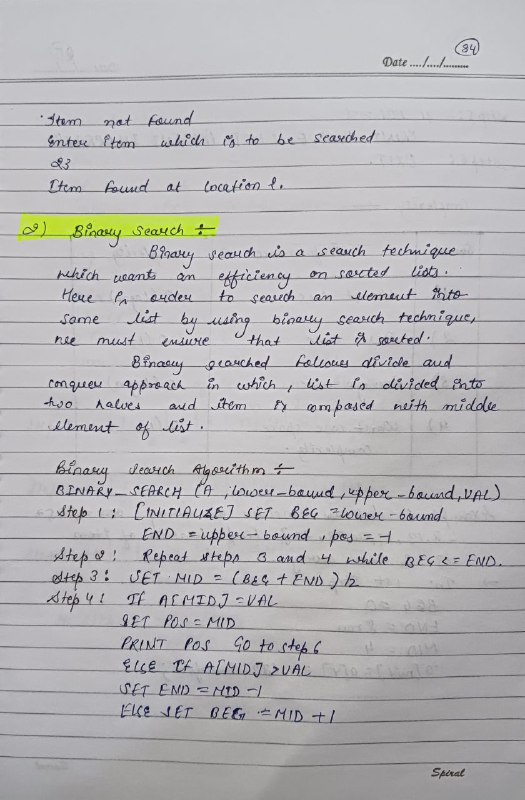 34
Date ..../..../.........
Item not found
Enter item which is to be searched
23
Item found at location 1.
2) Binary Search ÷
Binary search is a search technique
which wants an efficiency on sorted lists.
Here in order to search an element into
some list by using binary search technique,
we must ensure that list is sorted.
Binary searched follows divide and
conquer approach in which, list is divided into
two halves and item is compased with middle
element of list.
Binary Search Algorithm ÷
BINARY_SEARCH (A, lower-bound, upper-bound, VAL)
Step 1: [INITIALIZE] SET BEG = lower-bound
END = upper-bound, pos = -1
Step 2: Repeat steps 3 and 4 while BEG <= END.
Step 3: SET MID = (BEG + END)/2
Step 4: If A[MID] = VAL
SET POS = MID
PRINT POS Go to step 6
ELSE If A[MID] > VAL
SET END = MID - 1
ELSE SET BEG = MID + 1
Spiral